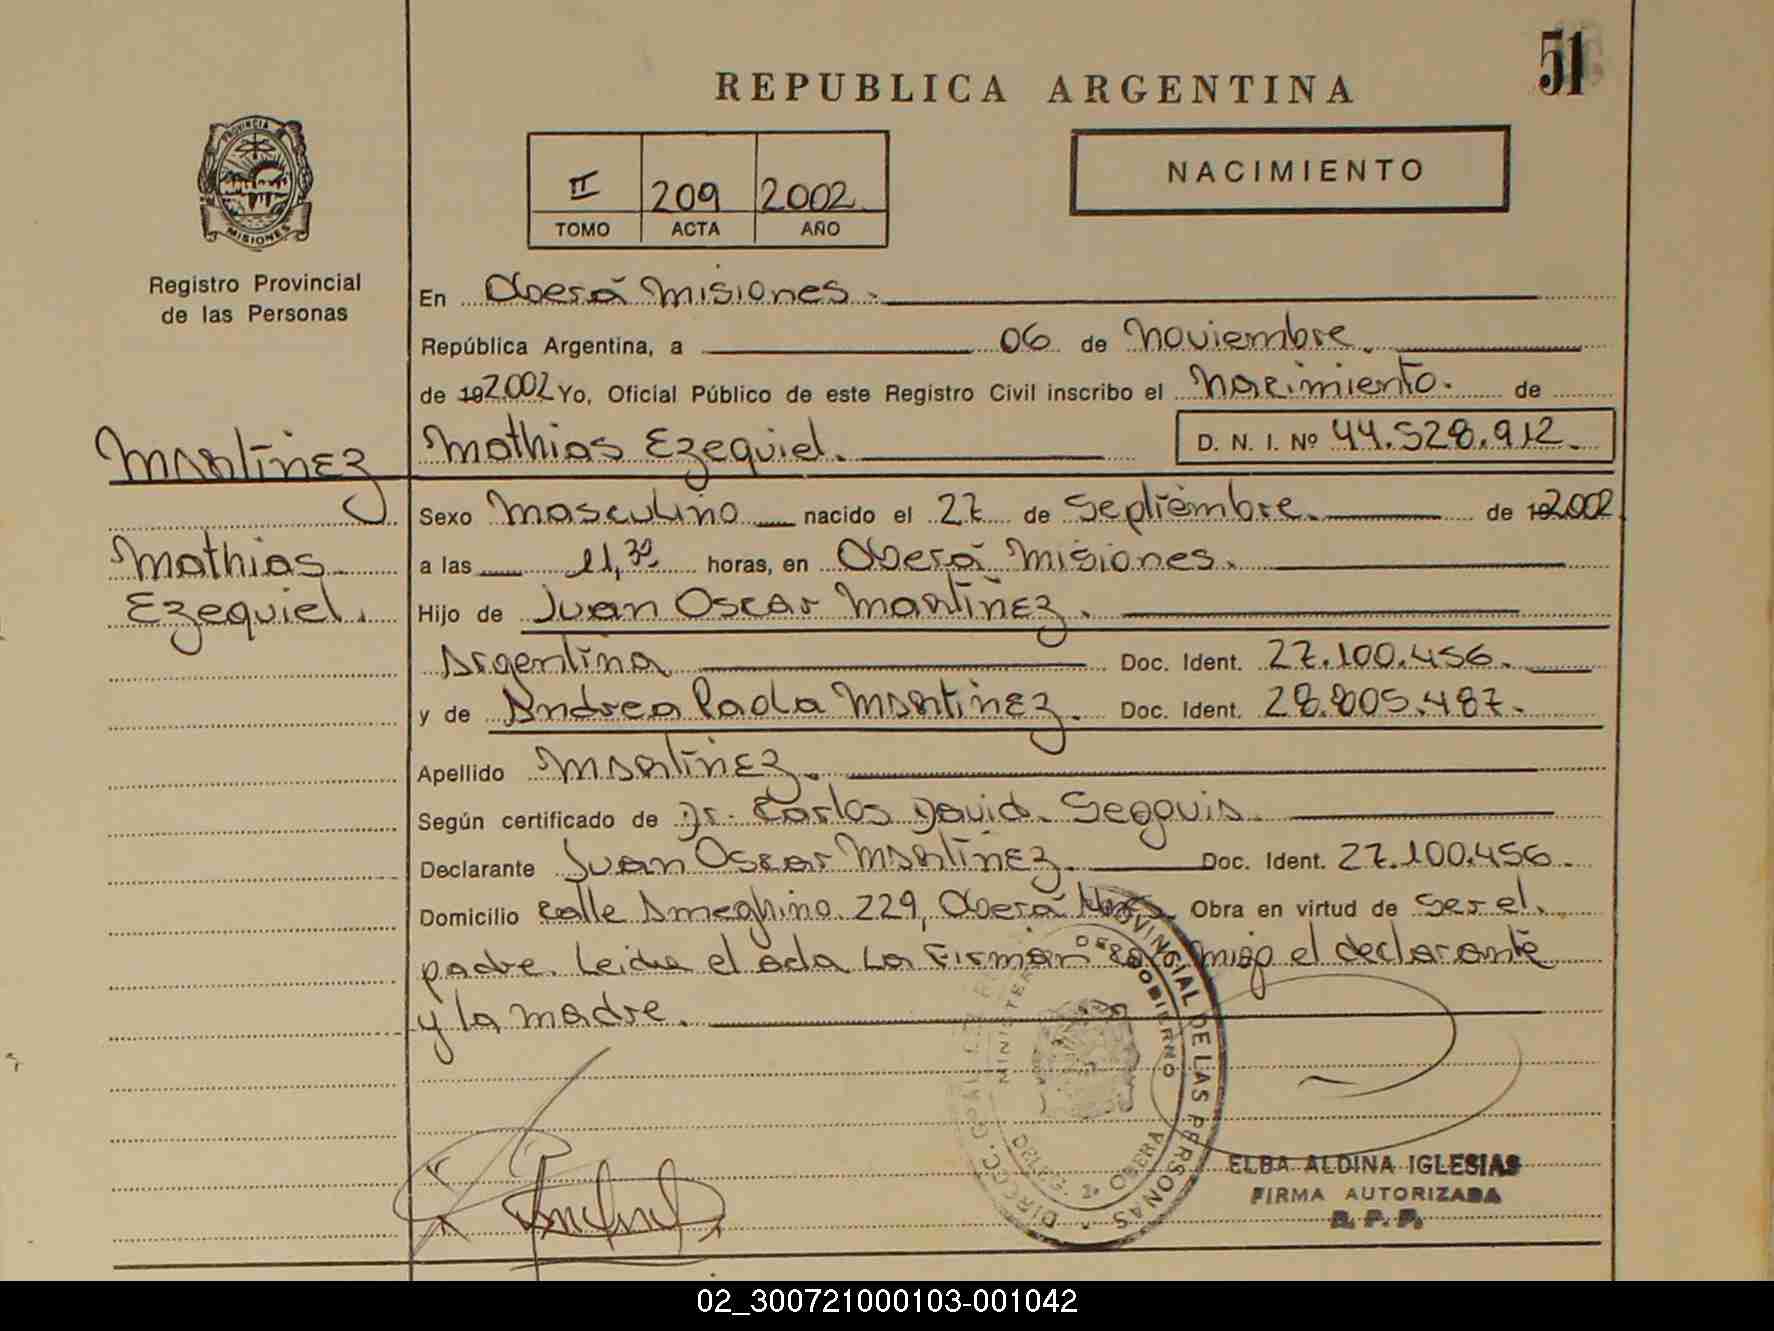 51
REPUBLICA ARGENTINA
PROVINCIA DE
MISIONES
Registro Provincial
de las Personas
II 209 2002
TOMO ACTA AÑO
NACIMIENTO
En Oberá Misiones.
República Argentina, a 06 de Noviembre.
de 19 2002 Yo, Oficial Público de este Registro Civil inscribo el Nacimiento. de
Martínez
Mathias Ezequiel. D. N. I. Nº 44.528.912.
Sexo Masculino nacido el 27 de Septiembre. de 19 2002
Mathias
Ezequiel.
a las 11,30 horas, en Oberá Misiones.
Hijo de Juan Oscar Martínez.
Argentina Doc. Ident. 27.100.456.
y de Andrea Paola Martinez. Doc. Ident. 28.805.487.
Apellido Martínez.
Según certificado de Dr. Carlos David. Segovis.
Declarante Juan Oscar Martínez. Doc. Ident. 27.100.456.
Domicilio Calle Ameghino 229, Oberá Mnes. Obra en virtud de Ser el.
padre. Leida el acta La Firman conmigo el declarante
y la madre.
PROVINCIAL DE LAS PERSONAS
MINISTERIO DE GOBIERNO
OBERA
ELBA ALDINA IGLESIAS
FIRMA AUTORIZADA
R. P. P.
02_300721000103-001042